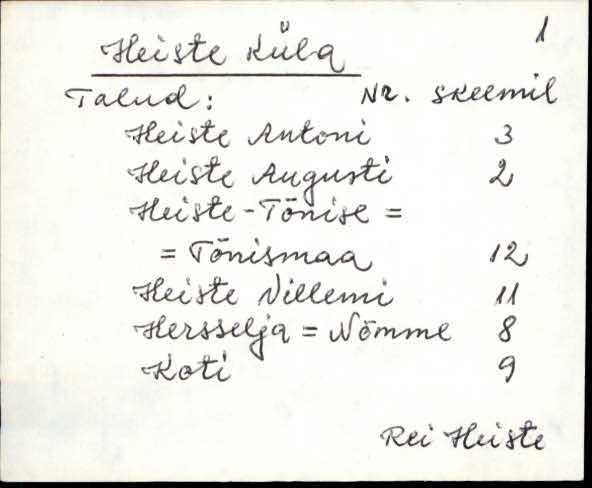 1
Heiste küla
Talud: Nr. skeemil
Heiste Antoni 3
Heiste Augusti 2
Heiste-Tõnise =
= Tõnismaa 12
Heiste Villemi 11
Hersselja = Nõmme 8
Koti 9
Rei Heiste